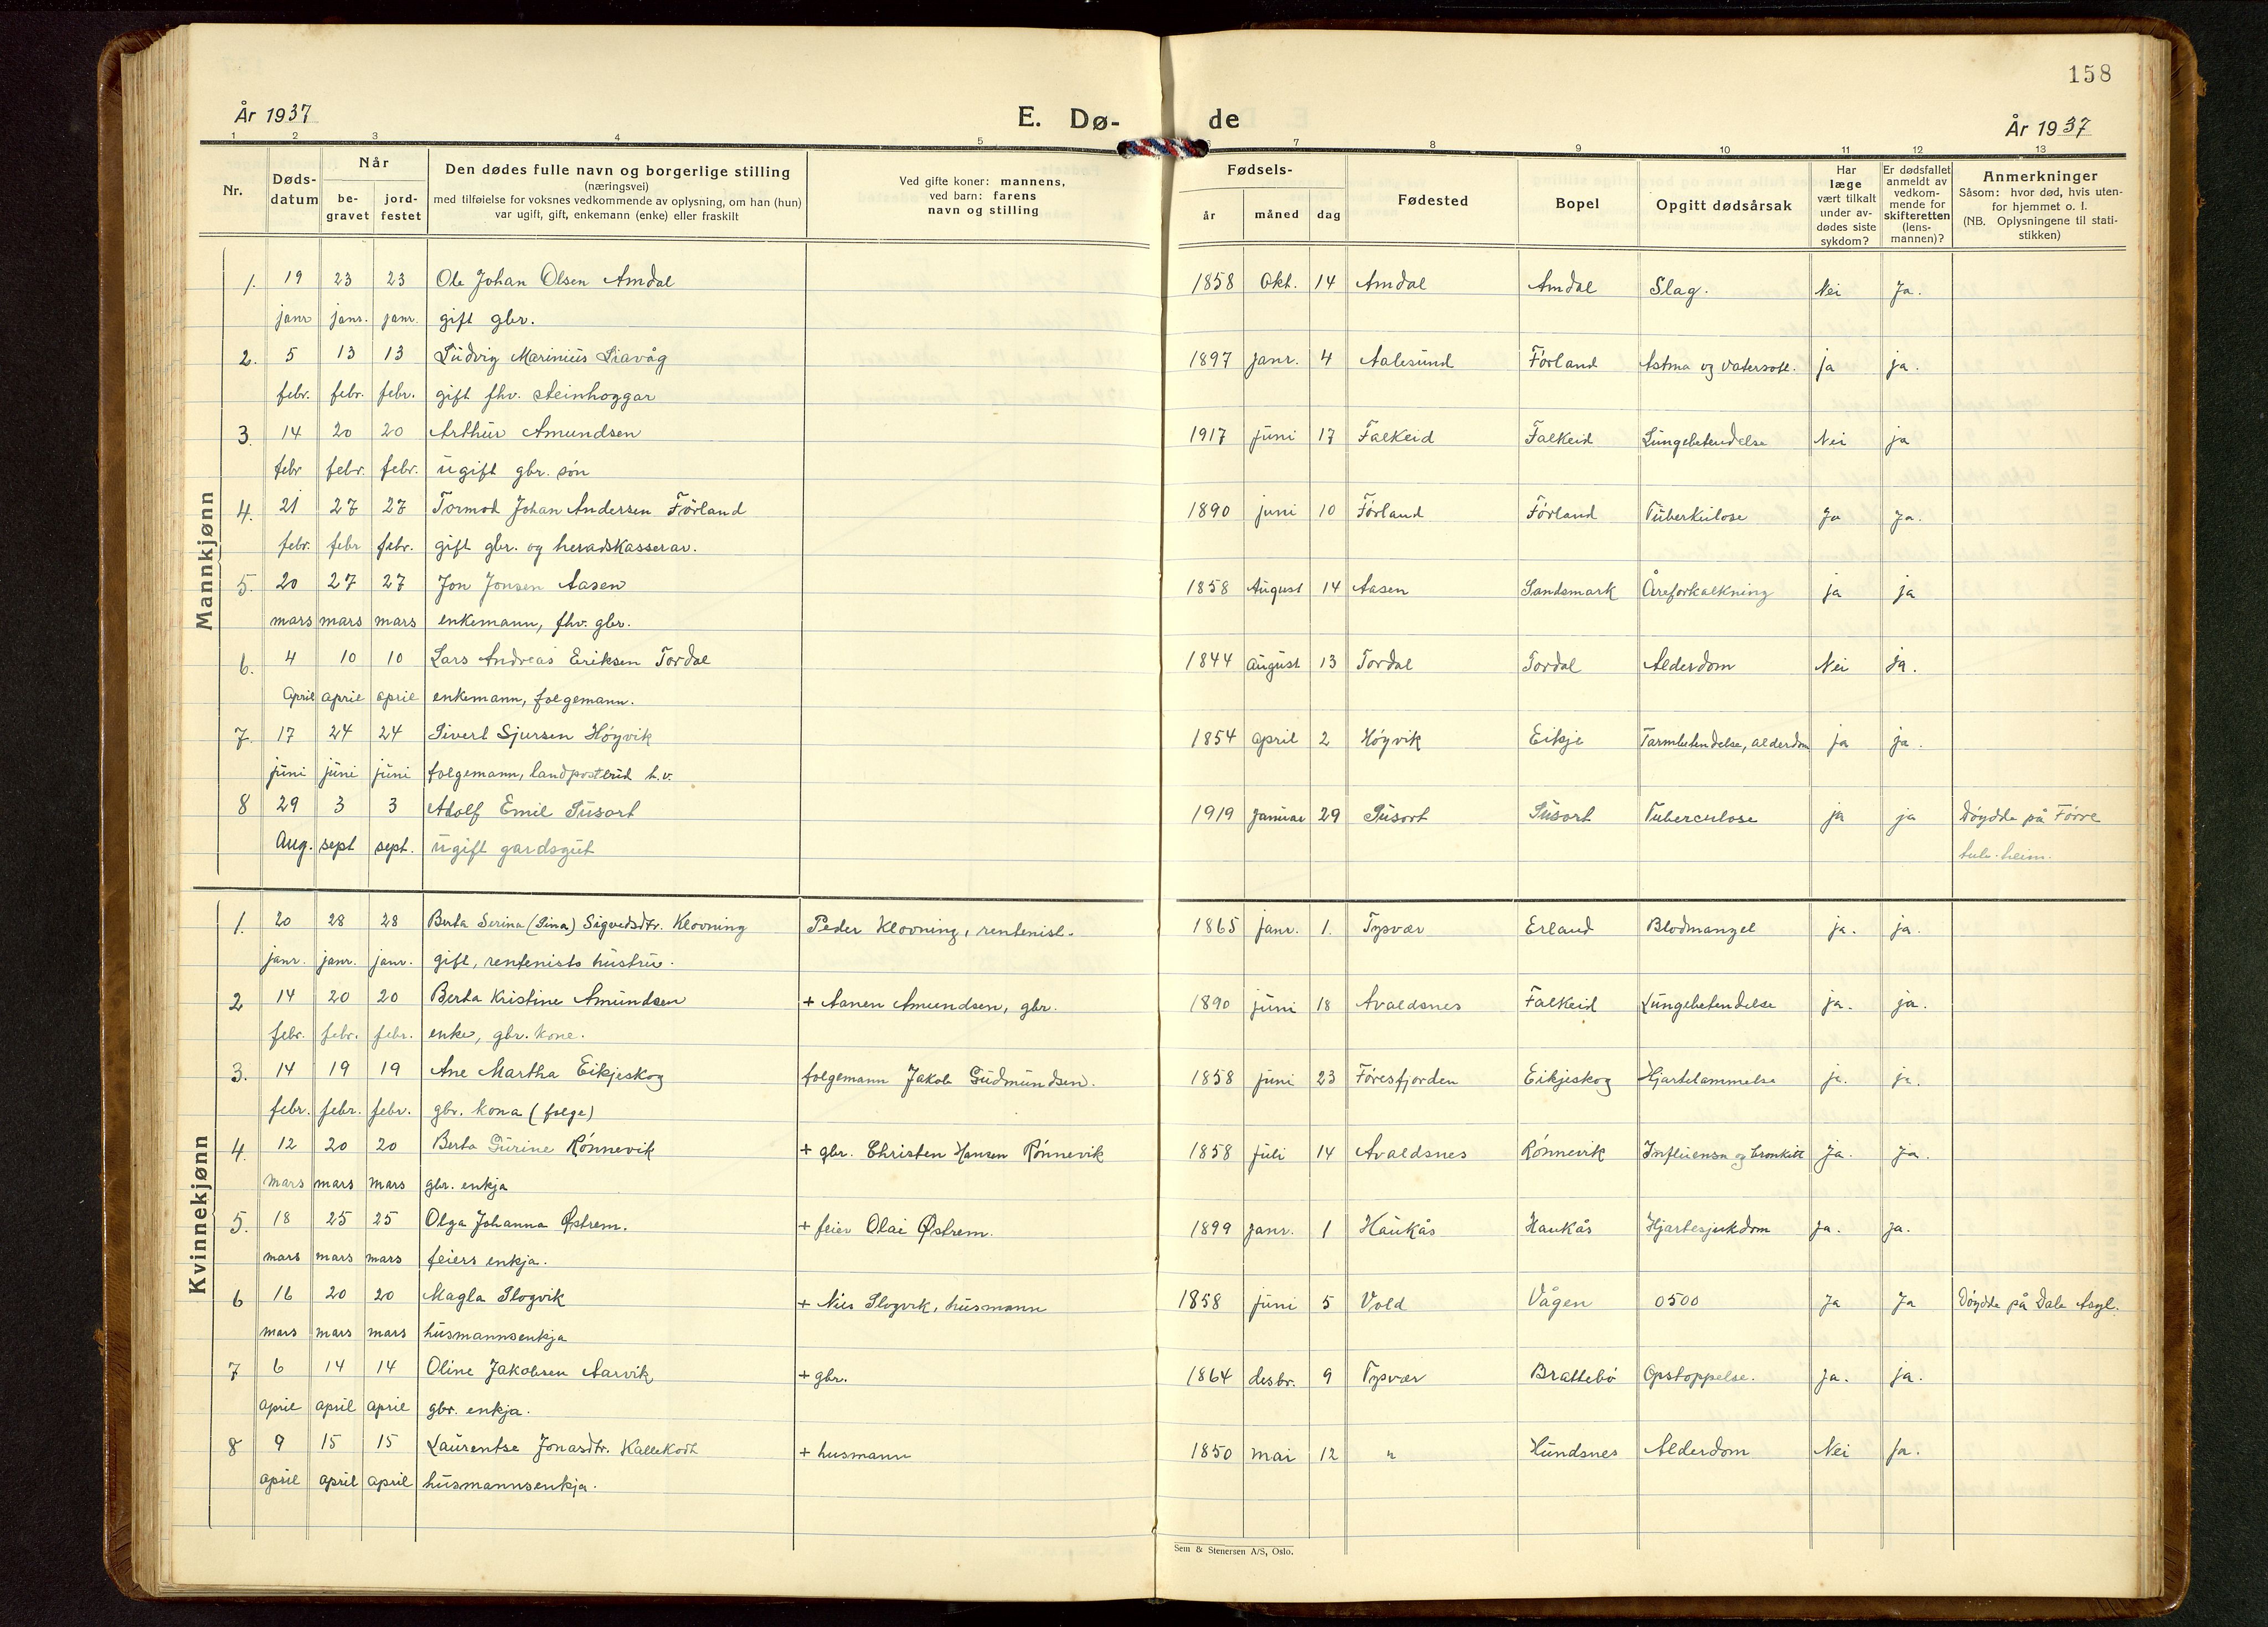 158
År 1937
E. Dø-
de
År 1937
1 2 3 4 5 6 7 8 9 10 11 12 13
Nr.
Døds-
datum
Når
be-
gravet
jord-
festet
Den dødes fulle navn og borgerlige stilling
(næringsvei)
med tilføielse for voksnes vedkommende av oplysning, om han (hun)
var ugift, gift, enkemann (enke) eller fraskilt
Ved gifte koner: mannens,
ved barn: farens
navn og stilling
Fødsels-
år
måned
dag
Fødested
Bopel
Opgitt dødsårsak
Har
læge
vært tilkalt
under av-
dødes siste
sykdom?
Er dødsfallet
anmeldt av
vedkom-
mende for
skifteretten
(lens-
mannen)?
Anmerkninger
Såsom: hvor død, hvis uten-
for hjemmet o. l.
(NB. Oplysningene til stati-
stikken)
Mannkjønn
1. 19 23 23 Ole Johan Olsen Amdal 1858 Okt. 14 Amdal Amdal Slag. Nei Ja.
janr janr. janr. gift gbr.
2. 5 13 13 Ludvig Marinius Liavåg 1897 janr. 4 Aalesund Førland Astma og vatersott. ja ja.
febr. febr. febr. gift fhv. steinhoggar
3. 14 20 20 Arthur Amundsen 1917 juni 17 Falkeid Falkeid Lungebetendelse Nei ja
febr febr. febr. ugift gbr. søn
4. 21 27 27 Tormod Johan Andersen Førland 1890 juni 10 Førland Førland Tuberkulose Ja Ja.
febr. febr febr. gift gbr. og heradskasserar.
5. 20 27 27 Jon Jonsen Aasen 1858 August 14 Aasen Sandsmark Åreforkalkning ja ja
mars mars mars enkemann, fhv. gbr.
6. 4 10 10 Lars Andreas Eriksen Tordal 1844 august 13 Tordal Tordal Alderdom Nei ja.
April april april enkemann, folgemann.
7. 17 24 24 Sivert Sjursen Høyvik 1854 april 2 Høyvik Eikje Tarmbetendelse, alderdom ja ja.
juni juni juni folgemann, landpostbud h.v.
8 29 3 3 Adolf Emil Susort 1919 januar 29 Susort Susort Tuberculose ja ja Døydde på Førre
Aug. sept sept. ugift gardsgut tub. heim.
Kvinnekjønn
1. 20 28 28 Berta Serina (Sina) Sigvedsdtr. Klovning Peder Klovning, rentenist. 1865 janr. 1. Tysvær Erland Blodmangel ja. ja.
janr. janr. janr. gift, rentenists hustru.
2 14 20 20 Berta Kristine Amundsen + Aanen Amundsen, gbr. 1890 juni 18 Avaldsnes Falkeid Lungebetendelse ja. ja.
febr. febr. febr. enke, gbr. kone.
3. 14 19 19 Ane Martha Eikjeskog folgemann Jakob Gudmundsen. 1858 juni 23 Føresfjorden Eikjeskog Hjartelammelse ja. ja.
febr. febr. febr. gbr. kona (folge)
4. 12 20 20 Berta Gurine Rønnevik + gbr. Christen Hansen Rønnevik 1858 juli 14 Avaldsnes Rønnevik Influensa og bronkitt Ja. Ja.
mars mars mars gbr. enkja
5. 18 25 25 Olga Johanna Østrem. + feier Olai Østrem. 1899 janr. 1 Haukås Haukås Hjartesjukdom Ja. Ja.
mars mars mars feiers enkja.
6 16 20 20 Magla Slogvik + Nils Slogvik, husmann 1858 juni 5 Vold Vågen 0500 Ja Ja Døydde på Dale Asyl.
mars mars mars husmannsenkja
7 6 14 14 Oline Jakobsen Aarvik + gbr. 1864 desbr. 9 Tysvær Brattebø Opstoppelse. Ja. ja.
April april april gbr. enkja.
8 9 15 15 Laurentse Jonasdtr. Kallekodt + husmann 1850 mai 12 " Hundsnes Alderdom Nei Ja.
april april april husmannsenkja.
Sem & Stenersen A/S, Oslo.